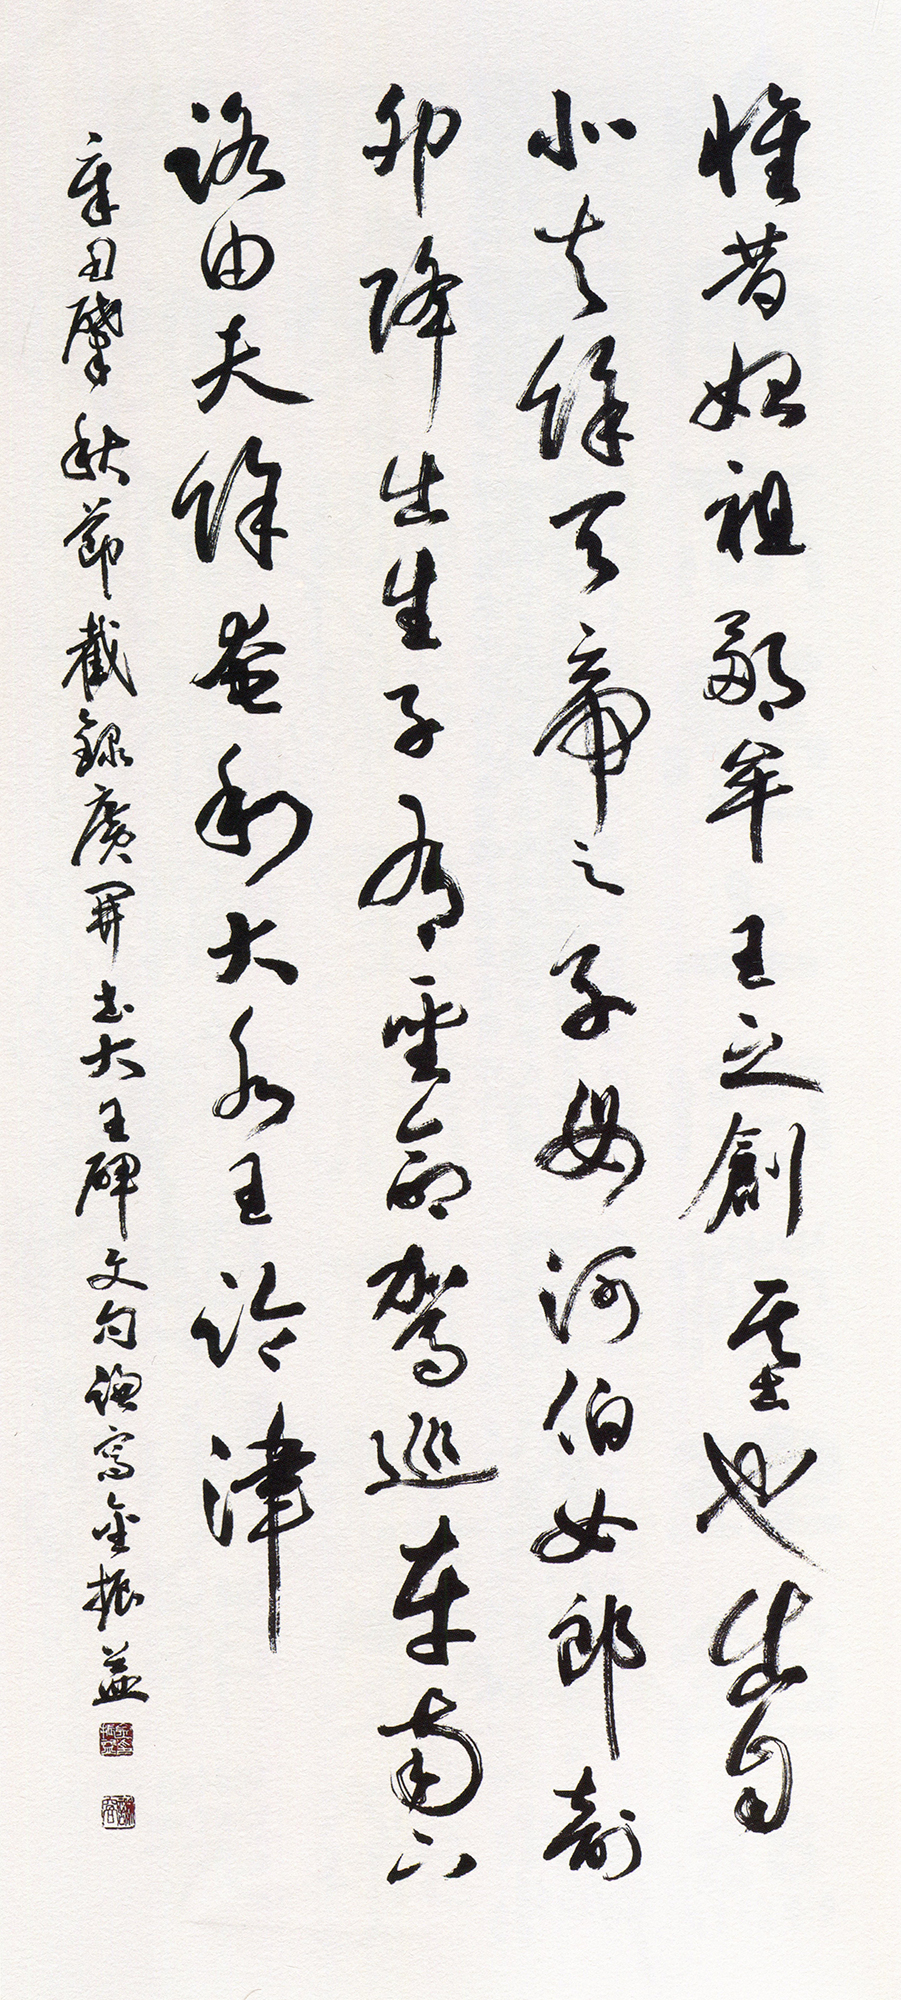 惟昔始祖鄒牟王之創基也出自
北夫餘天帝之子母河伯女郎剖
卵降出生子有聖命駕巡車南下
路由夫餘奄利大水王臨津
辛丑肇秋節截錄廣開土大王碑文句謙寫金振益